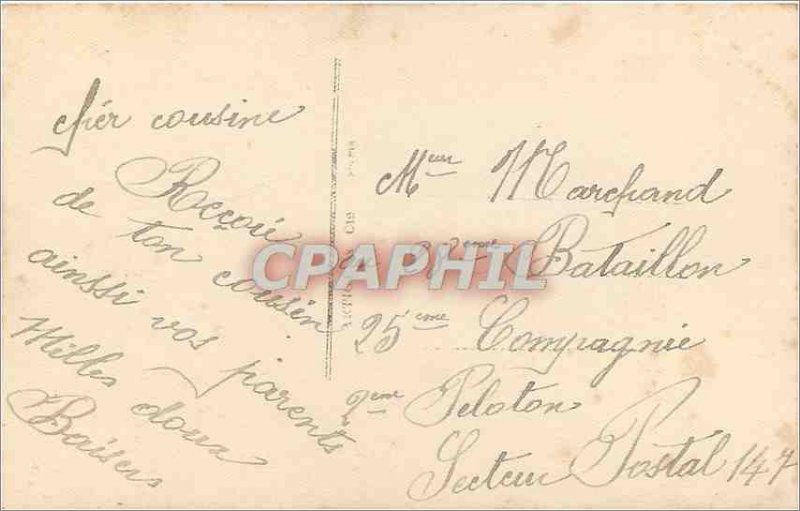 chér cousine
Reçoi
de ton cousin
ainssi vos parents
Milles doux
Baisers
Meur Marchand
Bataillon
25eme Compagnie
2eme Peloton
Secteur Postal 147
CPAPHIL